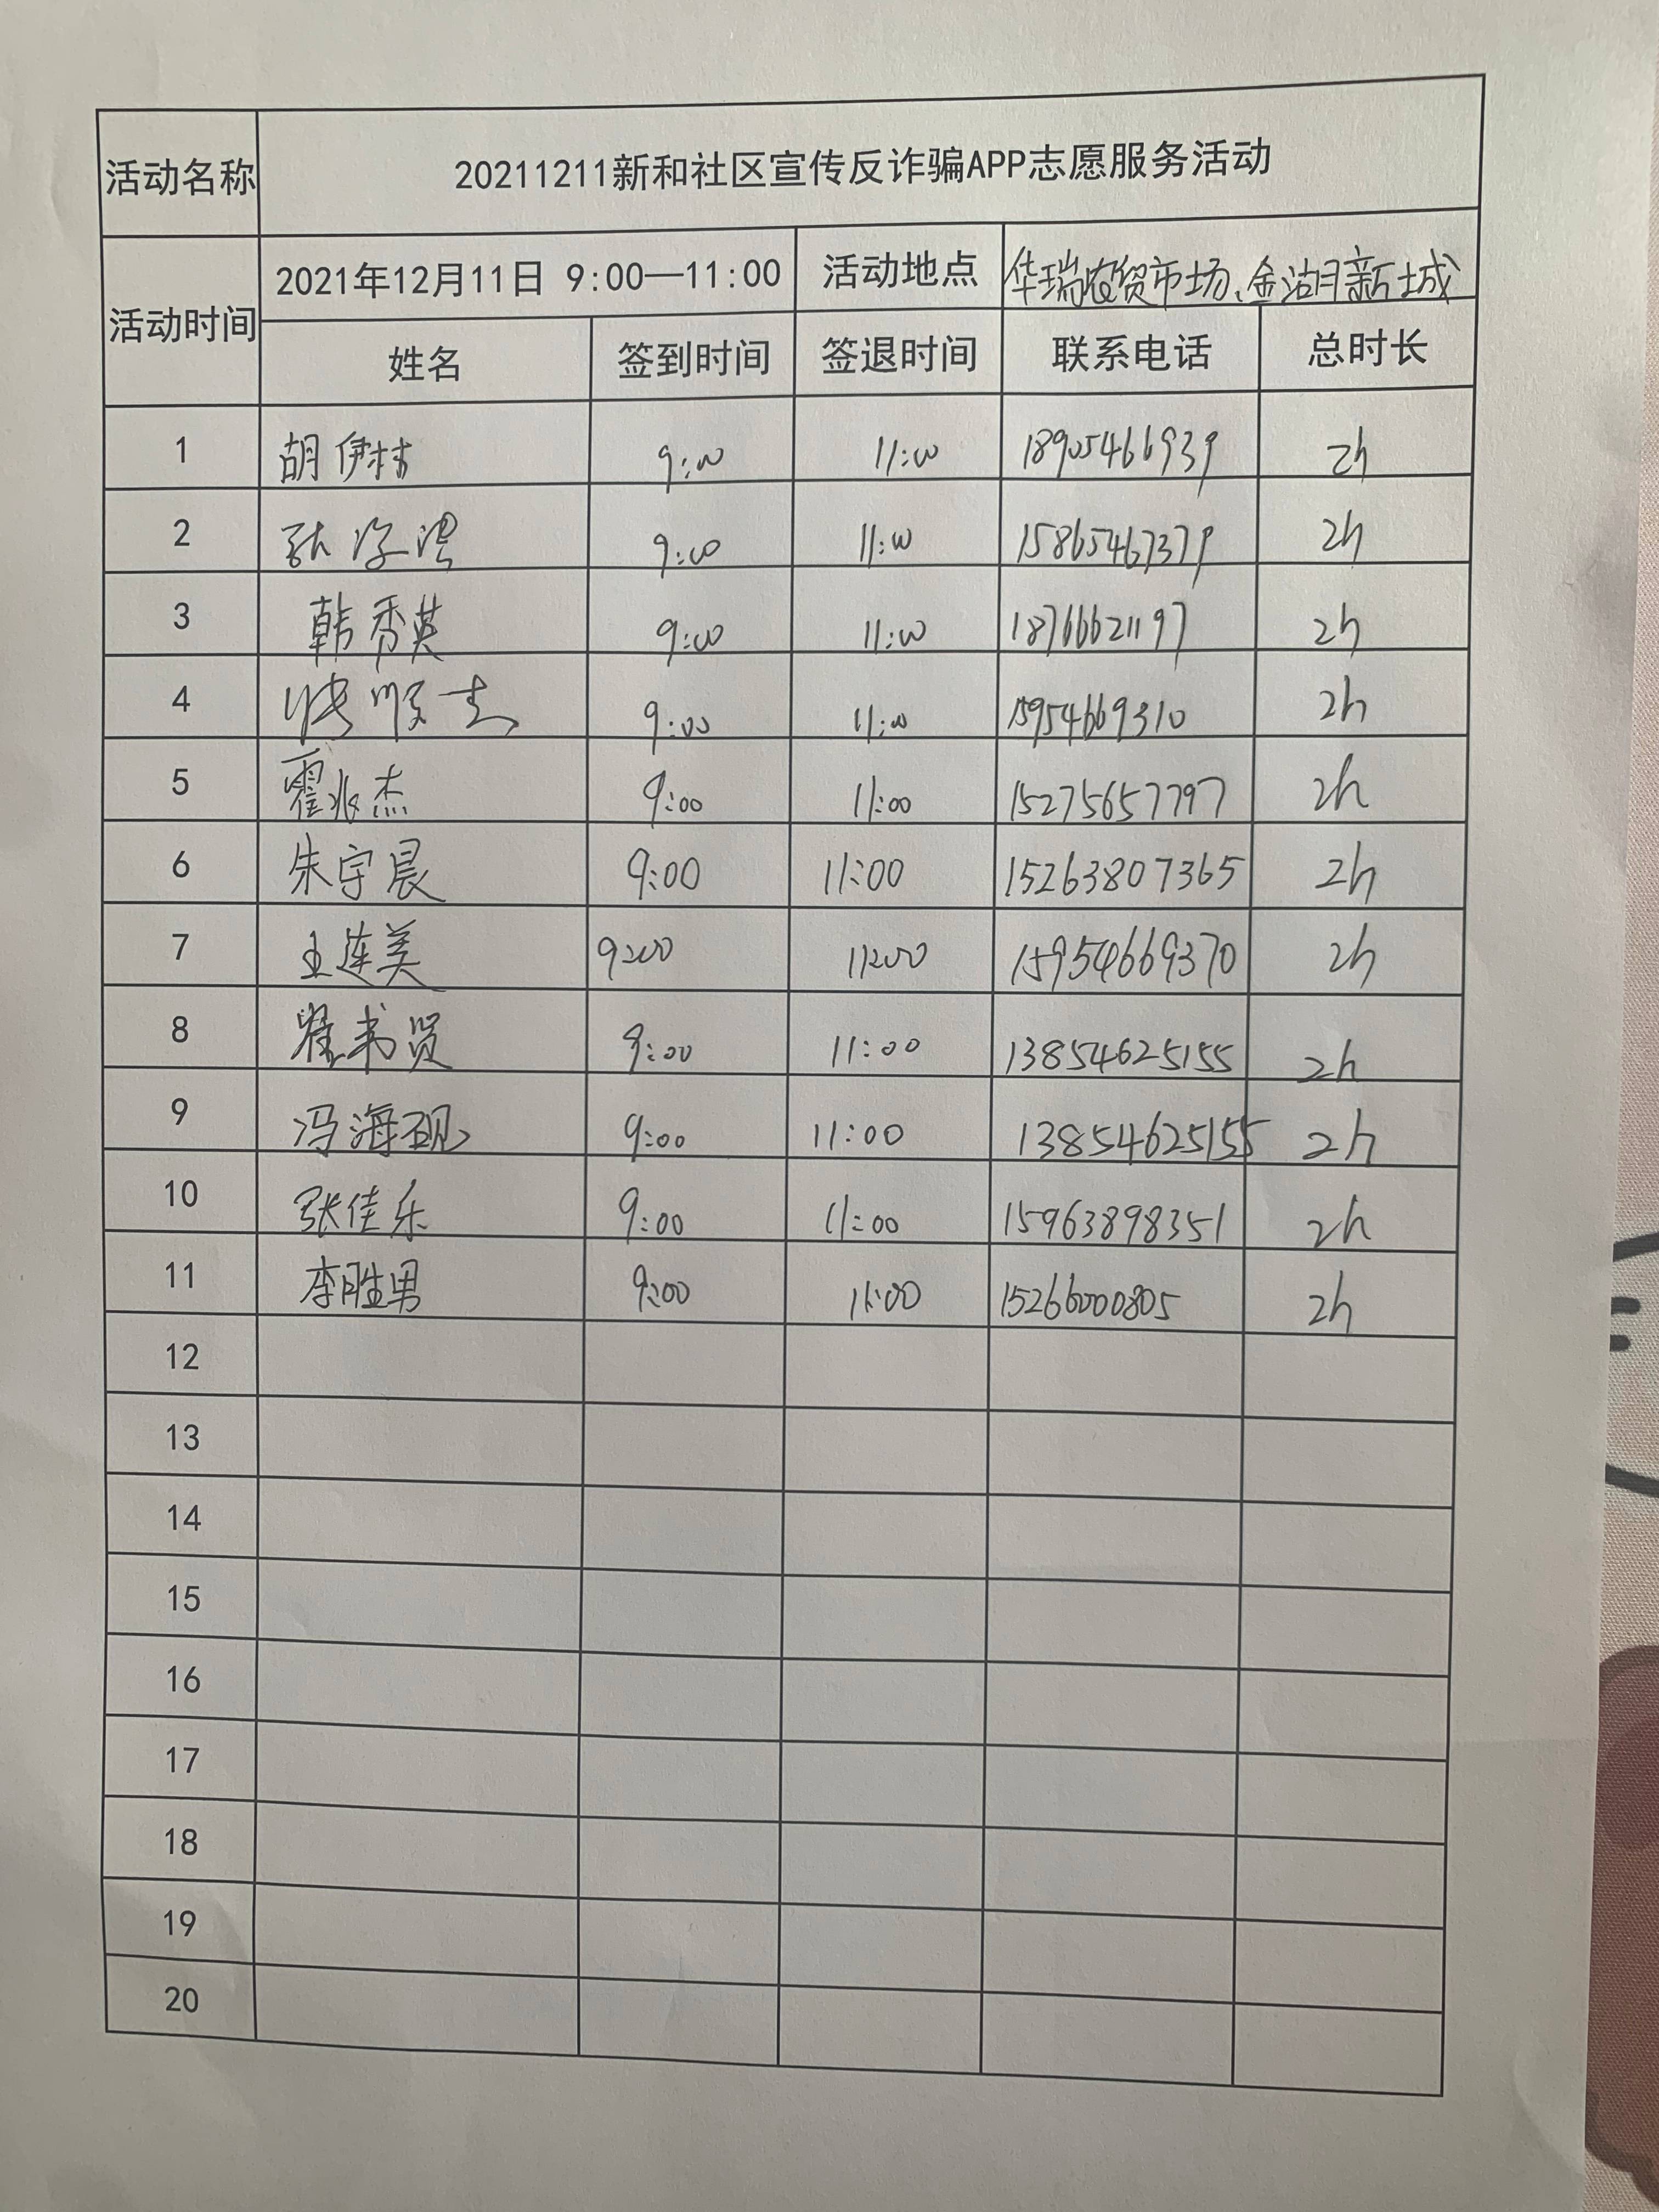 活动名称 20211211新和社区宣传反诈骗APP志愿服务活动
活动时间 2021年12月11日 9:00—11:00 活动地点 华瑞农贸市场、金湖新城
姓名 签到时间 签退时间 联系电话 总时长
1 胡伊林 9:00 11:00 18905466939 2h
2 9:00 11:00 15865467379 2h
3 韩秀英 9:00 11:00 18766621197 2h
4 9:00 11:00 15954669310 2h
5 霍兆杰 9:00 11:00 15275657797 2h
6 朱宇晨 9:00 11:00 15263807365 2h
7 王连美 9:00 11:00 15954669370 2h
8 9:00 11:00 13854625155 2h
9 冯海砚 9:00 11:00 13854625155 2h
10 张佳乐 9:00 11:00 15963898351 2h
11 李胜男 9:00 11:00 15266000805 2h
12
13
14
15
16
17
18
19
20